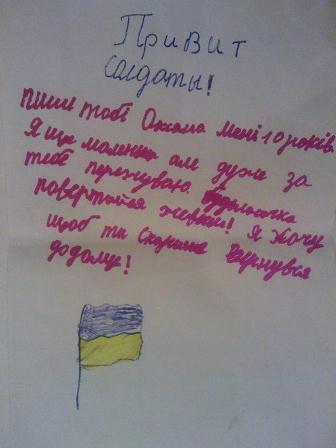 Привит
солдаты!
пише тобі Оксана мені 10 років
Я ще маленька але дуже за
тебе переживаю Будьласочка
повертайся живим! Я хочу
щоб ти скоріше вернувся
додому!